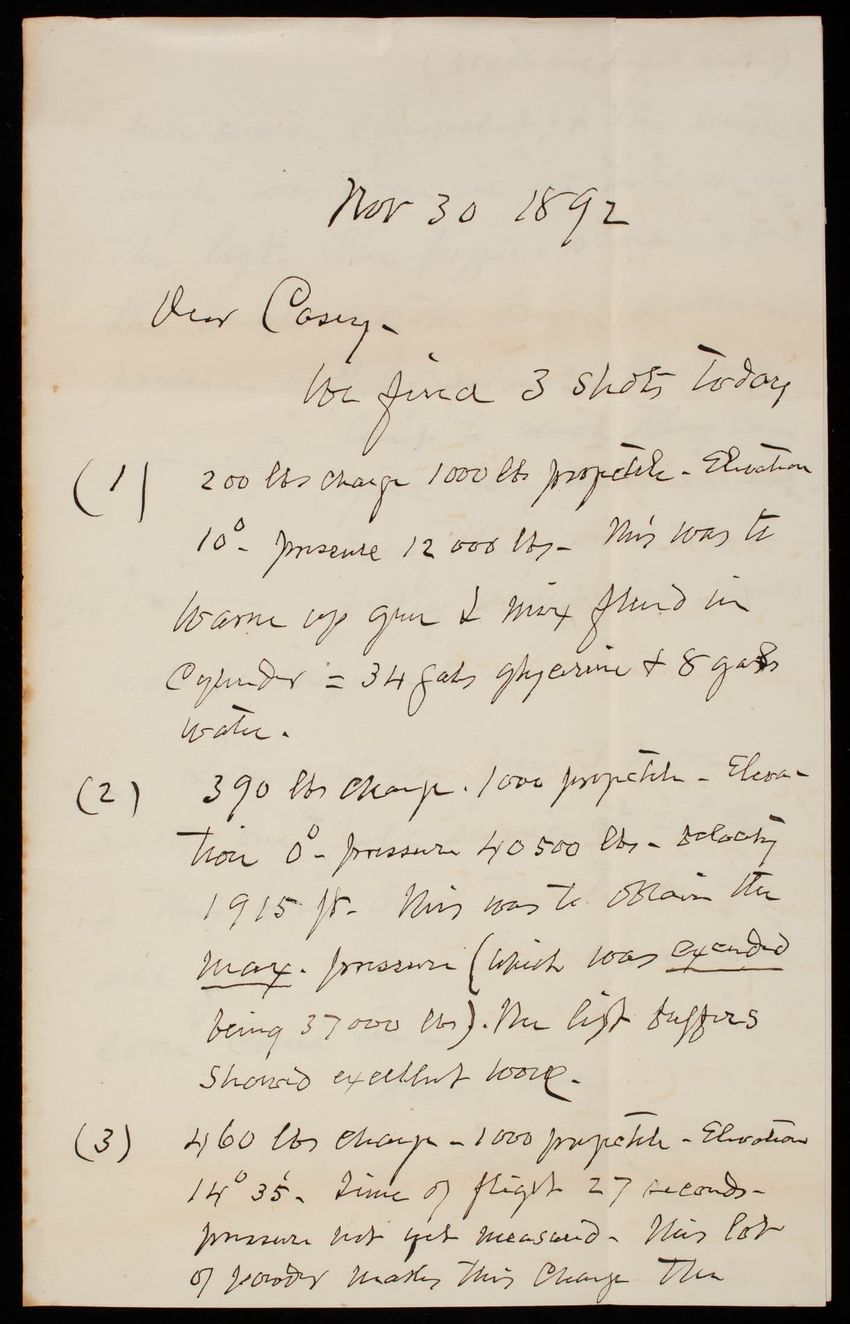 Nov 30 1892
Dear Casey -
We fired 3 shots today
(1) 200 lbs charge 1000 lbs projectile - Elevation
10° - pressure 12 000 lbs - This was to
warm up gun & mix fluid in
cylinder = 34 gals glycerine + 8 gals
water.
(2) 390 lbs charge. 1000 projectile - Eleva-
tion 0° - pressure 40 500 lbs - velocity
1915 ft - This was to obtain the
max. pressure (which was exceeded
being 37000 lbs). The buffers
showed excellent work.
(3) 460 lbs charge - 1000 projectile - Elevation
14° 35' - time of flight 27 seconds -
pressure not yet measured - This lot
of powder makes this charge the